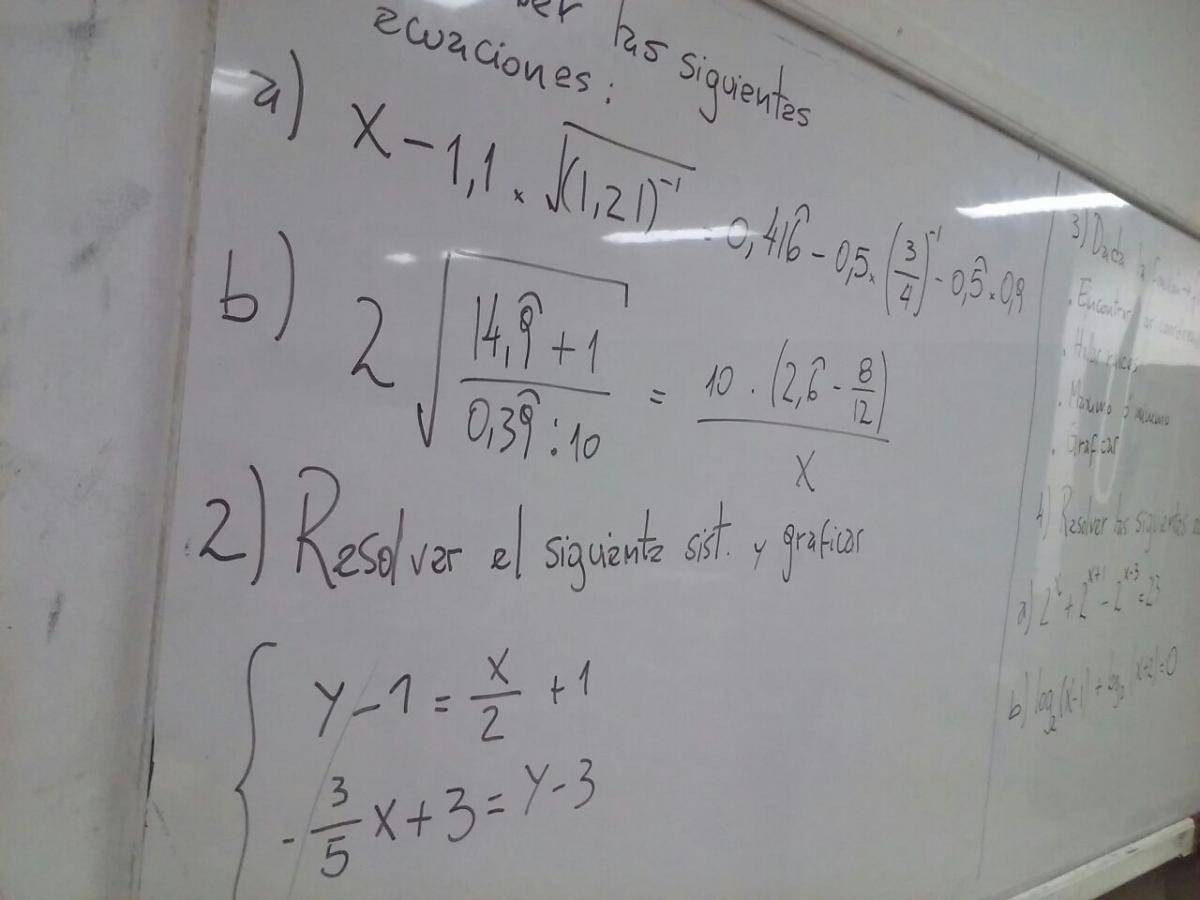 las siguientes
ecuaciones:
a) x - 1,1 . √(1,21)⁻¹ = 0,416̂ - 0,5 . (3/4)⁻¹ - 0,5̂ . 0,9
b) 2 √((14,9̂ + 1)/(0,39̂ : 10)) = (10 . (2,6̂ - 8/12))/x
2) Resolver el siguiente sist. y graficar
{ y - 1 = x/2 + 1
- 3/5 x + 3 = y - 3
3) Dada la
. Encontrar
. Hallar raíces
. Máximo ó mínimo
. Graficar
4) Resolver las siguientes
a) 2ˣ + 2ˣ⁺¹ - 2ˣ⁻³ = 23
b) log₂(x-1) + log₂(x+2) = 0